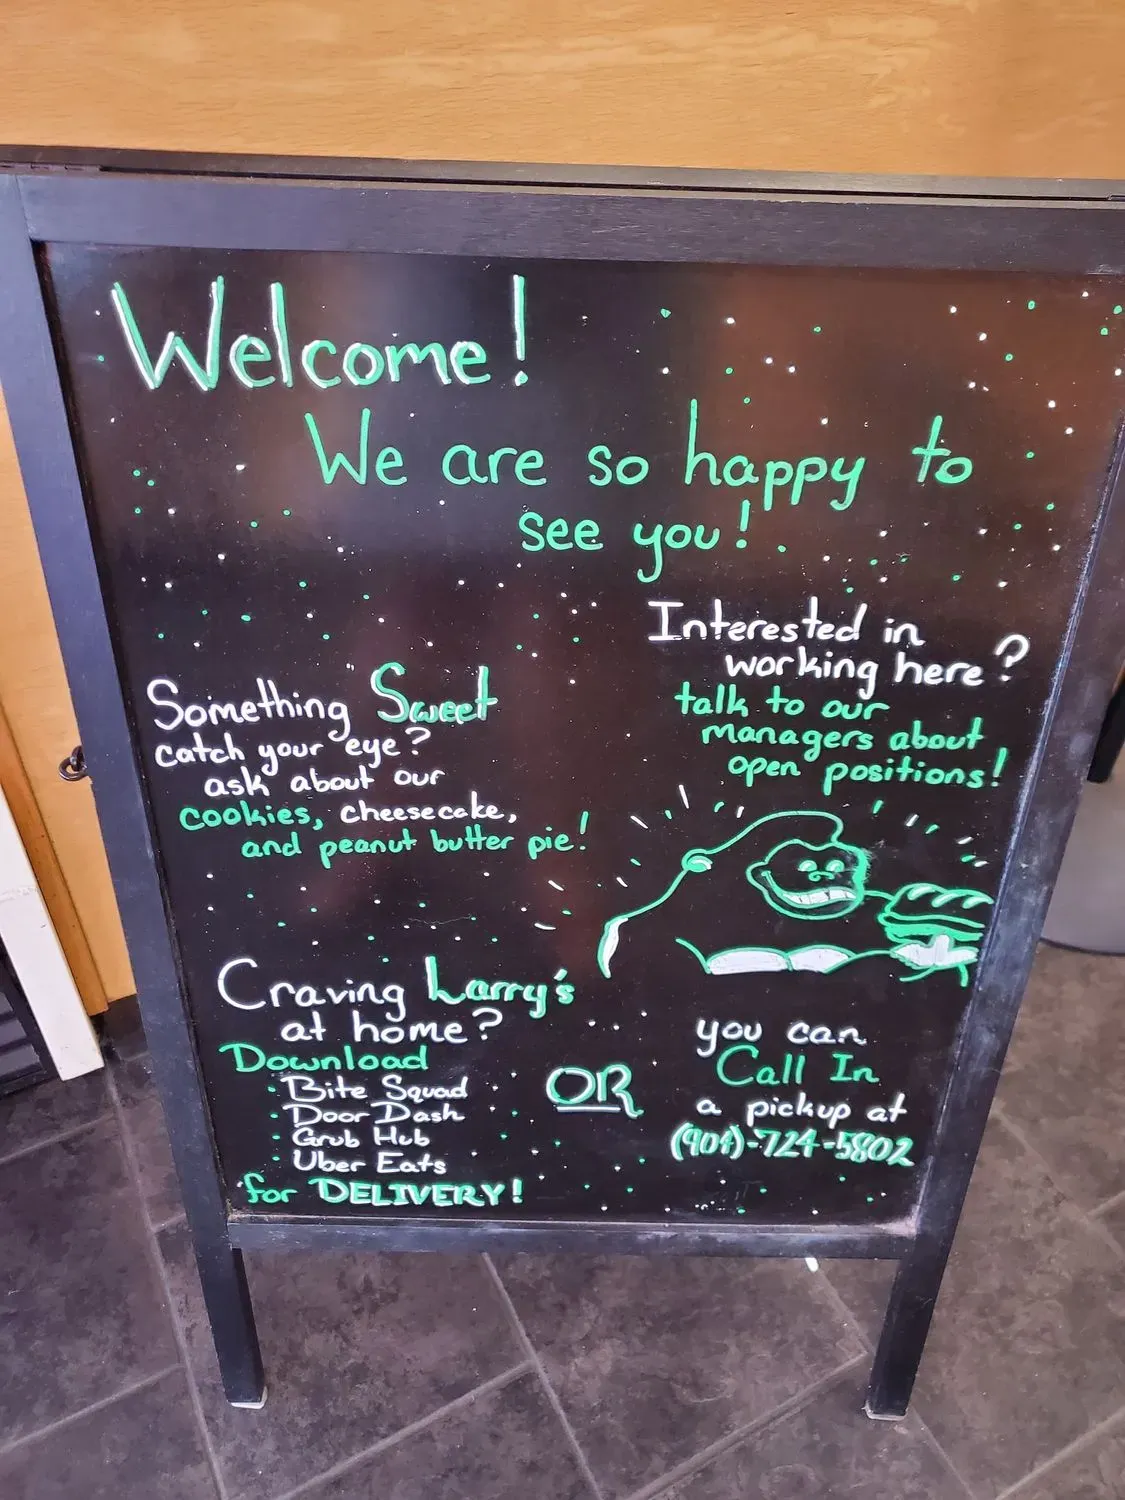 Welcome!
We are so happy to
see you!
Interested in
working here?
talk to our
managers about
open positions!
Something Sweet
catch your eye?
ask about our
cookies, cheesecake,
and peanut butter pie!
Craving Larry's
at home?
Download
· Bite Squad
· Door Dash
· Grub Hub
· Uber Eats
for DELIVERY!
OR
you can
Call In
a pickup at
(904)-724-5802